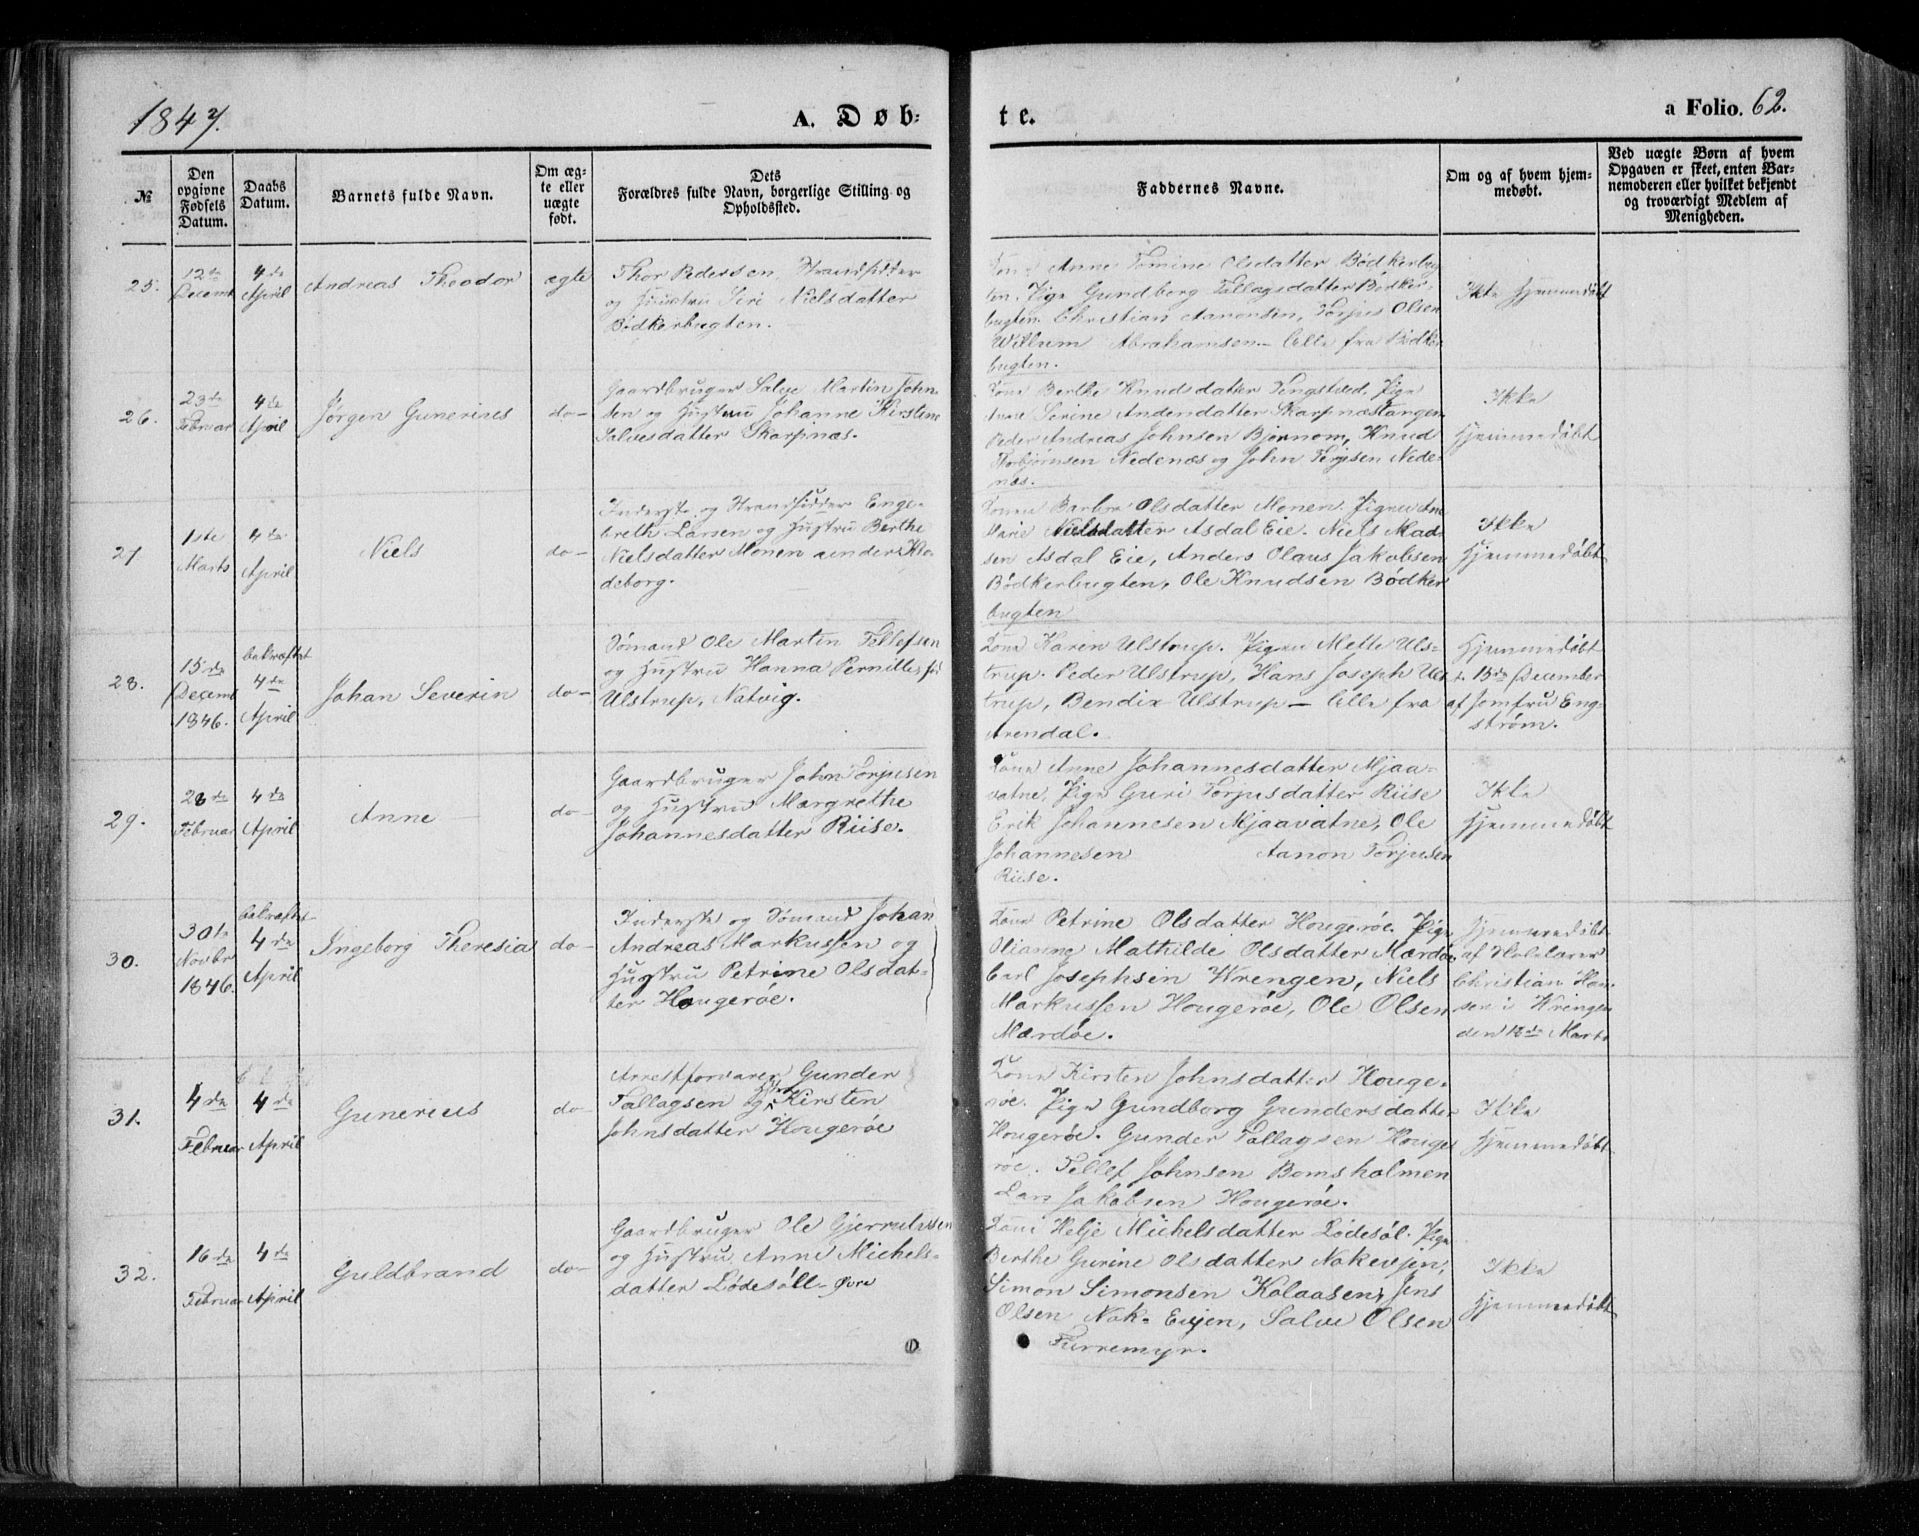 1847.
A. Døb-
te.
a Folio. 62.
№
Den opgivne Fødsels Datum.
Daabs Datum.
Barnets fulde Navn.
Om ægte eller uægte født.
Dets Forældres fulde Navn, borgerlige Stilling og Opholdssted.
Faddernes Navne.
Om og af hvem hjemmedøbt.
Ved uægte Børn af hvem Opgaven er skeet, enten Barnemoderen eller hvilket bekjendt og troværdigt Medlem af Menigheden.
25.
12te Decemb
4de April
Andreas Theodor
ægte
Thor Pedersen, Strandsidder
og Hustru Siri Nielsdatter
Bødkerbugten.
Kone Anne Tomine Olsdatter Bødkerbug
ten. Pige Gundborg Tallagsdatter Bødker-
bugten. Christian Aanonsen, Torjus Olsen
Willum Abrahamsen – Alle fra Bødker
bugten.
Ikke Hjemmedøbt
26.
23de Februar
4de April
Jørgen Gunerius
do–
Gaardbruger Salve Martin John-
sen og Hustru Johanne Kirstine
Salvesdatter Skarpnæs.
Kone Berthe Knudsdatter Tingstved, Pige
Anne Serine Andersdatter Skarpnæstangen
Peder Andreas Johnsen Bjornom, Knud
Thorbjørnsen Nedenæs og John Terjesen Nede-
næs.
Ikke
Hjemmedøbt
27
1ste Marts
4de April
Niels
do–
Inderste og Strandsidder Enge-
breth Larsen og Hustru Berthe
Nielsdatter Monen under Klo-
deborg.
Konen Barbro Olsdatter Monen. Pigen Ane
Marie Nielsdatter Asdal Eie. Niels Mad-
sen Asdal Eie, Anders Olaus Jakobsen
Bødkerbugten, Ole Knudsen Bødker
bugten
Ikke
Hjemmedøbt
28.
15de Decemb 1846.
bekræftet 4de April
Johan Severin
do–
Sømand Ole Martin Tellefsen
og Hustru Hanna Pernille, fød
Ulstrup, Natvig.
Kone Karen Ulstrup. Pigen Mette Uls-
trup. Peder Ulstrup, Hans Joseph Uls
trup, Bendix Ulstrup – Alle fra
Arendal.
Hjemmedøbt
t. 15de December
af Jomfru Eng-
strøm.
29.
28de Februar
4de April
Anne
do–
Gaardbruger John Torjusen
og Hustru Margrethe
Johannesdatter Riise.
Kone Anne Johannesdatter Mjaa-
vatne, Pige Guri Torjusdatter Riise
Erik Johannesen Mjaavatne, Ole
Johannesen Aanon Torjusen
Riise.
Ikke
Hjemmedøbt
30.
30te Novbr 1846.
bekræftet 4de April
Ingeborg Theresia
do–
Inderste og Sømand Johan
Andreas Markussen og
Hustru Petrine Olsdat-
ter Hougerøe.
Kone Petrine Olsdatter Hougerøe. Pige
Olianne Mathilde Olsdatter Mærdøe.
Carl Josephsen Wrengen, Niels
Markussen Hougerøe, Ole Olsen
Mærdøe.
Hjemmedøbt
af Skolelærer
Christian Han-
sen i Wringen
den 12te Marts
31.
4de Februar
4de April
Gunerius
do–
Arrestforvarer Gunder
Tallagsen og Hustru Kirsten
Johnsdatter Hougerøe
Kone Kirsten Johnsdatter Houge-
røe. Pige Gundborg Gundersdatter
Hougerøe. Gunder Tallagsen Houge
røe. Tellef Johnsen Bomsholmen
Lars Jakobsen Hougerøe.
Ikke
Hjemmedøbt
32.
16de Februar
4de April
Guldbrand
do–
Gaardbruger Ole Gjerrulvsen
og Hustru Anne Michels-
datter Lødesøll – Øvre
Kone Helje Michelsdatter Lødesøl. Pige
Berthe Gurine Olsdatter Nakevjen,
Simon Simonsen Kolaasen, Jens
Olsen Nak-Evjen, Salve Olsen
Furremyr.
Ikke
Hjemmedøbt